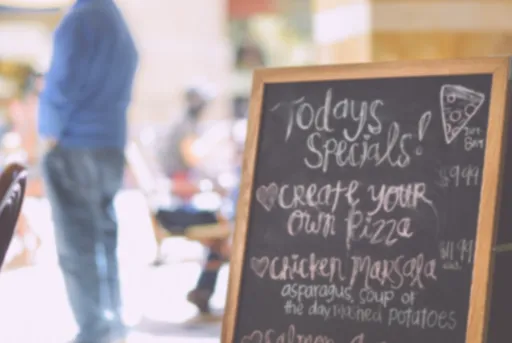 Todays
Specials!
create your
own Pizza
$9.99
chicken Marsala
asparagus, soup of
the day, mashed potatoes
Salmon